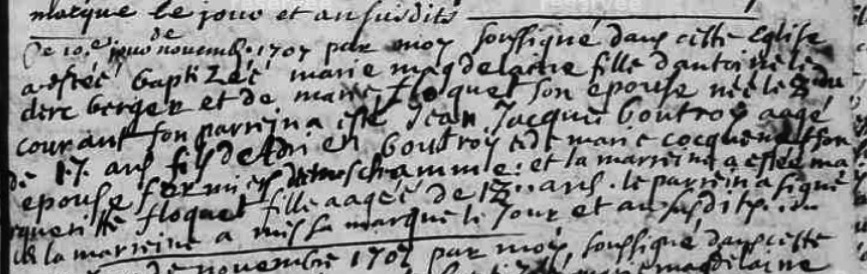 marque le jour et an susdits
Ce 10.e jour de novemb. 1707 par moy soussigné dans cette Eglise
a estée baptizéé marie magdelaine fille d'antoine le
clerc berger et de marie floquet son epouse néé le 8 du
courant son parrein a esté Jean Jacque boutroy aagé
de 17. ans fils de Adrien boutroy et de marie cocquen son
epouse et la marreine a estée mar
queritte floquet fille aagéé de ans. le parrein a signé
la marreine a mis sa marque le jour et an susdits.
de novembre 1707 par moy soussigné dans cette
marie magdelaine